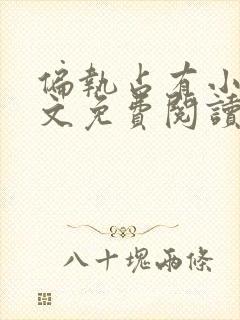 偏執占有小
文免費閱讀
八十塊兩條